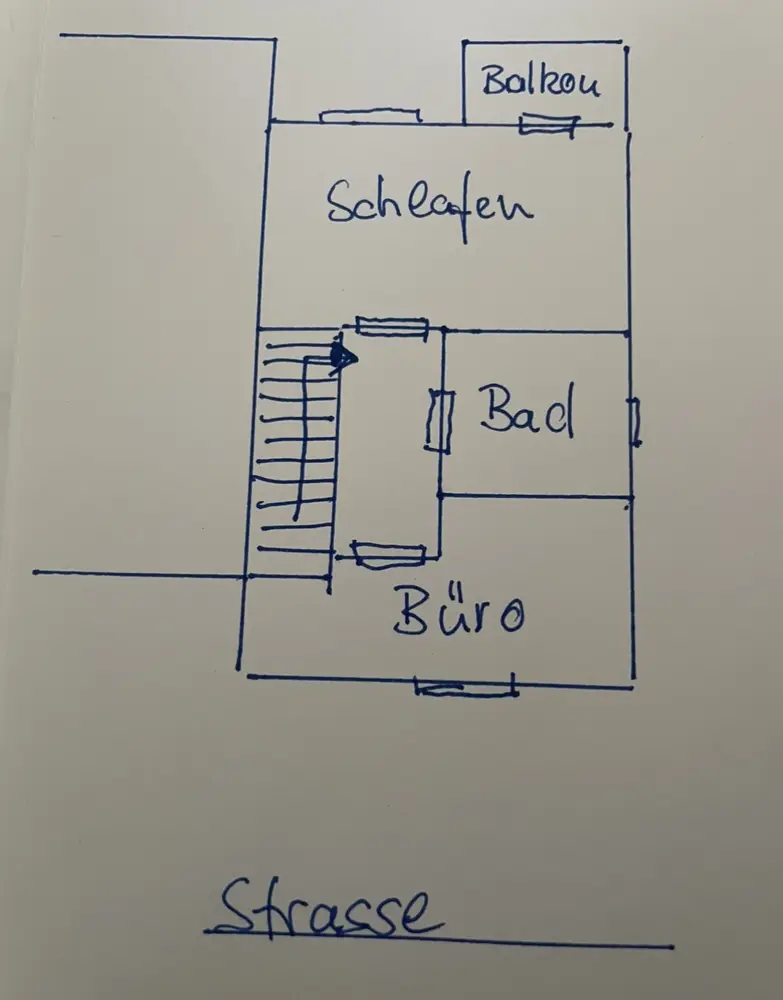 Balkon
Schlafen
Bad
Büro
Strasse